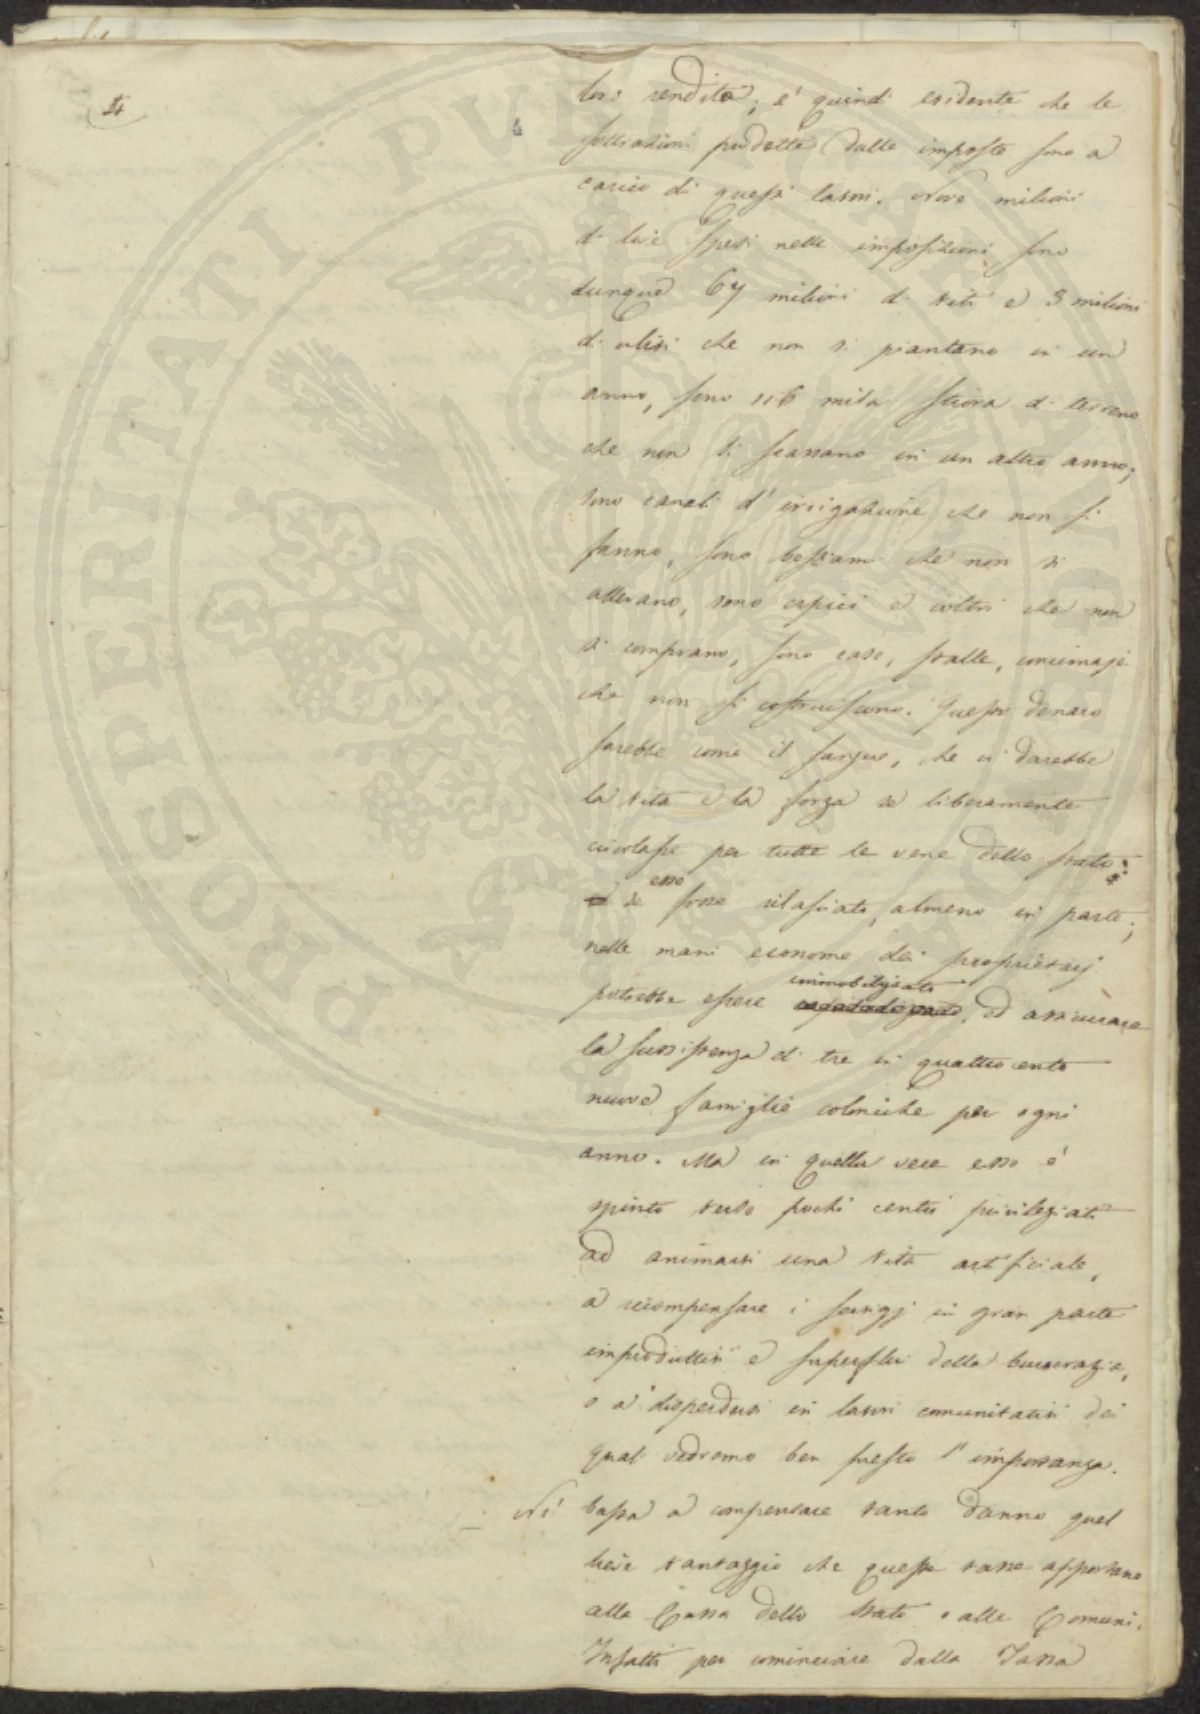 loro rendita; é quindi evidente che le
sottrazioni prodotte dalle imposte sono a
carico di questi lavori. Nove milioni
di lire spesi nelle imposizioni sono
dunque 67 milioni di viti e 3 milioni
di ulivi che non si piantano in un
anno, sono 116 mila stiora di terreno
che non si scassano in un altro anno;
sono canali d'irrigazione che non si
fanno, sono bestiami che non si
allevano, sono erpici e coltri che non
si comprano, sono case, stalle, concimaje
che non si costruiscono. Questo denaro
sarebbe come il sangue, che ci darebbe
la vita e la forza se liberamente
circolasse per tutte le vene dello stato:
se esso fosse rilasciato, almeno in parte,
nelle mani econome dei proprietarj
potrebbe essere immobilizzato, ed assicurare
la sussistenza di tre in quattrocento
nuove famiglie coloniche per ogni
anno. Ma in quella vece esso é
spinto verso pochi centri privilegiati
ad animarsi una vita artificiale,
a ricompensare i servigj in gran parte
improduttivi e superflui della burocrazia,
o a disperdersi in lavori comunitativi dei
quali vedremo ben presto l'importanza.
Né basta a compensare tanto danno quel
lieve vantaggio che queste tasse apportano
alla Cassa dello Stato o alle Comuni.
Infatti per cominciare dalla Tassa
PROSPERITATI PVBLICAE